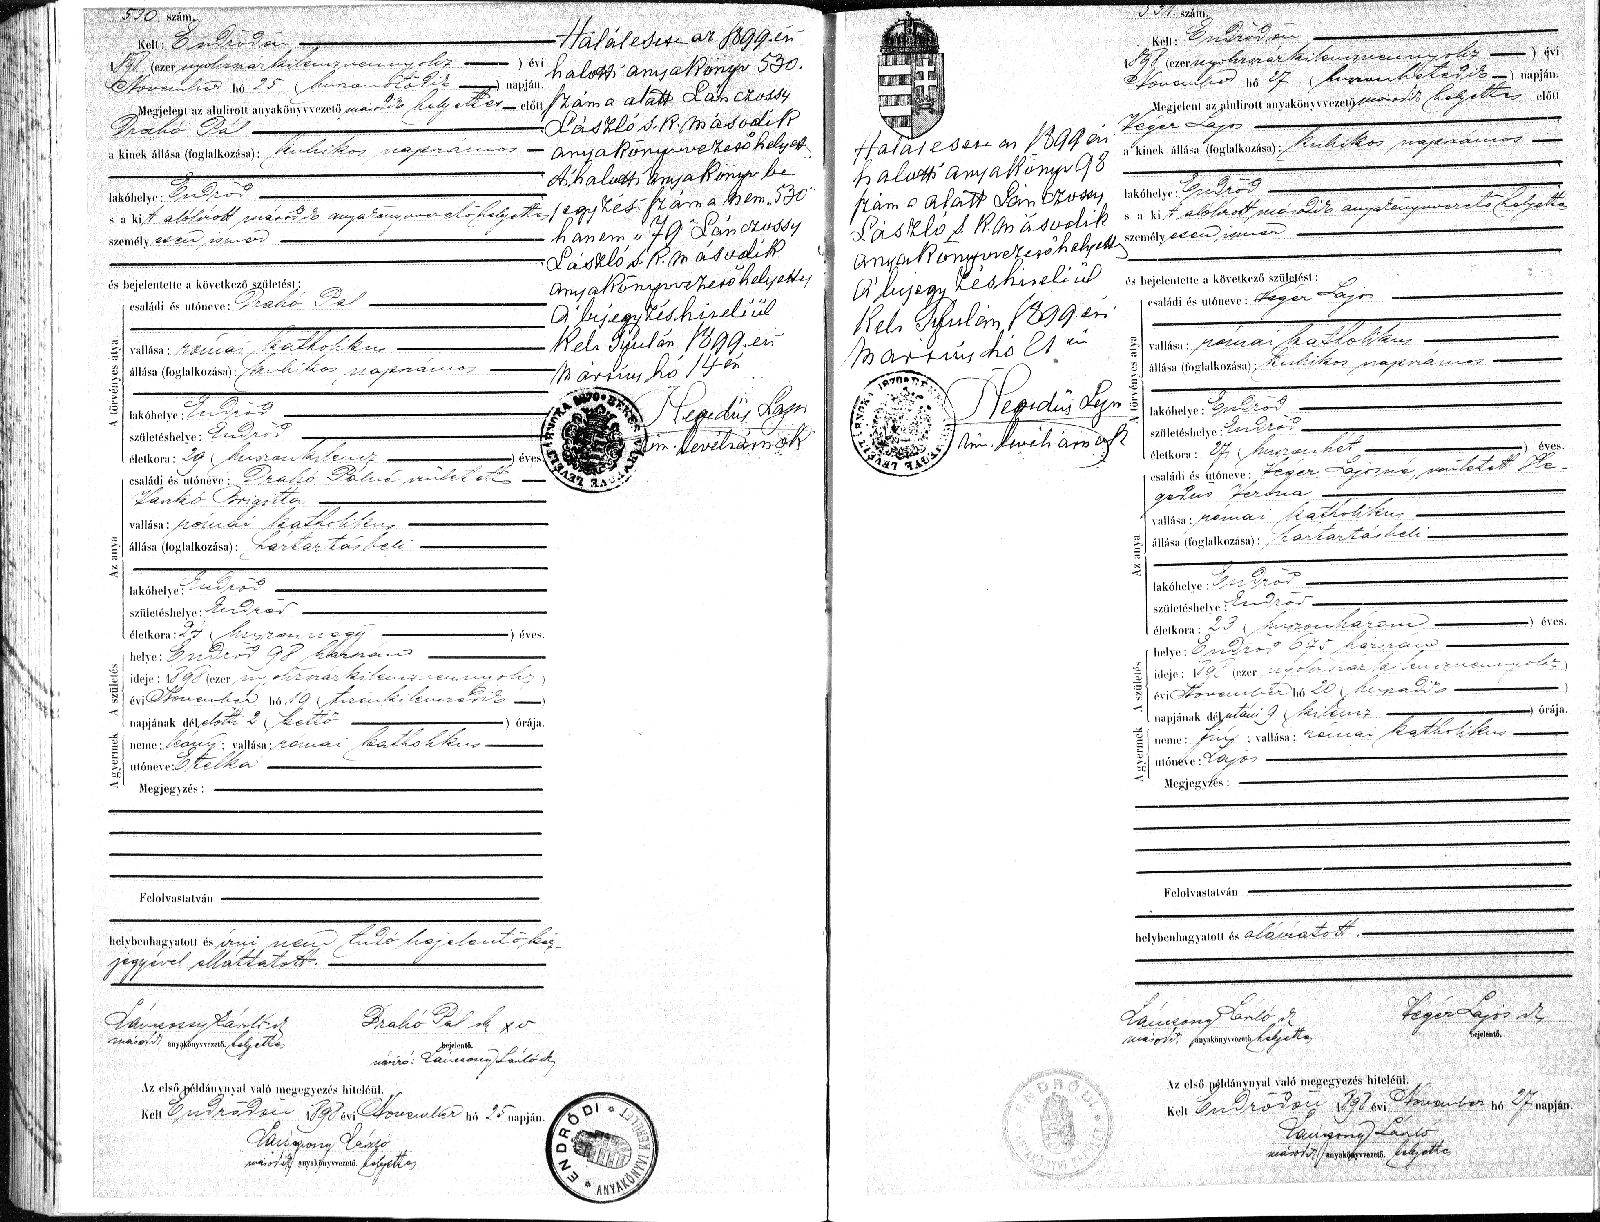 530 szám.
Kelt: Endrődön,
898 (ezer nyolczszázkilenczvennyolcz ) évi
November hó 25 (huszonötödik ) napján.
Megjelent az alulirott anyakönyvvezető második helyettes előtt
Drahó Pál
a kinek állása (foglalkozása): kubikos napszámos
lakóhelye: Endrőd
s a kit alulirott második anyakönyvvezetőhelyettes
személyesen ismer
és bejelentette a következő születést:
A törvényes atya
családi és utóneve: Drahó Pál
vallása: római katholikus
állása (foglalkozása): kubikos, napszámos
lakóhelye: Endrőd
születéshelye: Endrőd
életkora: 29 (huszonkilencz ) éves.
Az anya
családi és utóneve: Drahó Pálné született
Hankó Brigitta
vallása: római katholikus
állása (foglalkozása): háztartásbeli
lakóhelye: Endrőd
születéshelye: Endrőd
életkora: 24 (huszonnégy ) éves.
A születés
helye: Endrőd 98 házszám
ideje: 898 (ezer nyolczszázkilenczvennyolcz)
évi November hó 19 (tizenkilenczedik )
napjának délelőtti 2 (kettő ) órája.
A gyermek
neme: leány; vallása: római katholikus
utóneve: Etelka
Megjegyzés:
Felolvastatván
helybenhagyatott és írni nem tudó bejelentő kéz-
jegyével elláttatott.
Lánczossy László sk
másodi anyakönyvvezető helyettes
Drahó Pál sk xv
bejelentő.
névíró: Lánczossy László sk
Az első példánynyal való megegyezés hiteléül.
Kelt Endrődön, 898 évi November hó 25 napján.
Lánczossy László
másodi anyakönyvvezető. helyettes
Halálesete az 1899 évi
halotti anyakönyv 530.
száma alatt Lánczossy
László s.k. második
anyakönyvvezetőhelyett
A halotti anyakönyv be
jegyzés száma nem 530
hanem "79" Lánczossy
László s.k. második
anyakönyvvezetőhelyettes
A bejegyzés hiteléül
Kelt Gyulán, 1899 évi
március hó 14 én
Hegedüs Lajos
vm. levéltárnok
BÉKÉS VÁRMEGYE LEVÉLTÁRNOKA 1870
ENDRŐDI ANYAKÖNYVI KERÜLET
531. szám.
Kelt: Endrődön
898 (ezer nyolczszázkilenczvennyolcz ) évi
November hó 27 (huszonhetedik ) napján.
Megjelent az alulirott anyakönyvvezető másodi helyettes előtt
Véger Lajos
a kinek állása (foglalkozása): kubikos napszámos
lakóhelye: Endrőd
s a kit alulirott másodi anyakönyvvezető helyettes
személyesen ismer
és bejelentette a következő születést:
A törvényes atya
családi és utóneve: Véger Lajos
vallása: római katholikus
állása (foglalkozása): kubikos napszámos
lakóhelye: Endrőd
születéshelye: Endrőd
életkora: 27 (huszonhét ) éves.
Az anya
családi és utóneve: Véger Lajosné, született He-
gedüs Terézia
vallása: római katholikus
állása (foglalkozása): háztartásbeli
lakóhelye: Endrőd
születéshelye: Endrőd
életkora: 23 (huszonhárom ) éves.
A születés
helye: Endrőd 675 házszám
ideje: 898 (ezer nyolczszázkilenczvennyolcz)
évi November hó 20 (huszadik )
napjának délutáni 9 (kilencz ) órája.
A gyermek
neme: fiú; vallása: római katholikus
utóneve: Lajos
Megjegyzés:
Felolvastatván
helybenhagyatott és aláíratott.
Lánczossy László sk
másodi anyakönyvvezető helyettes
Véger Lajos sk
bejelentő.
Az első példánynyal való megegyezés hiteléül.
Kelt Endrődön 898 évi November hó 27 napján.
Lánczossy László
másodi anyakönyvvezető. helyettes
Halálesete az 1899 évi
halotti anyakönyv 98
száma alatt Lánczossy
László s.k. második
anyakönyvvezetőhelyettes
A bejegyzés hiteléül
Kelt Gyulán, 1899 évi
március hó 21 én
Hegedüs Lajos
vm. levéltárnok
BÉKÉS VÁRMEGYE LEVÉLTÁRNOKA 1870
ENDRŐDI ANYAKÖNYVI KERÜLET